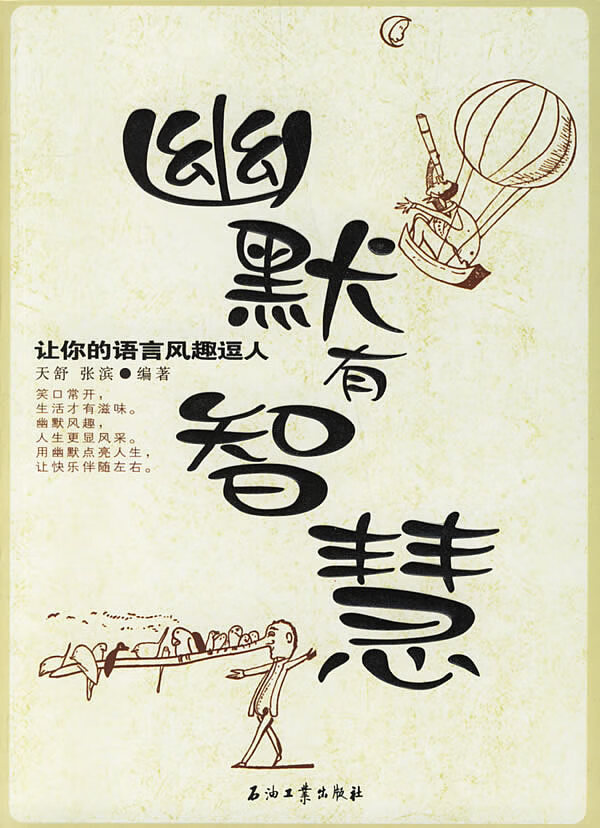 幽默有智慧
让你的语言风趣逗人
天舒 张滨●编著
笑口常开，
生活才有滋味。
幽默风趣，
人生更显风采。
用幽默点亮人生，
让快乐伴随左右。
石油工业出版社